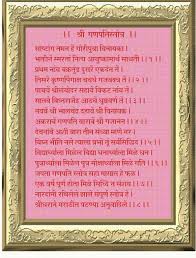 ॥ श्री गणपतिस्तोत्र ॥
साष्टांग नमन हे गौरीपुत्रा विनायका ।
भक्तीने स्मरता नित्य आयुष्कामार्थ साधती ॥ १ ॥
प्रथम नांव वक्रतुंड दुसरे एकदंत ते ।
तिसरे कृष्णपिंगाक्ष चवथे गजवक्त्र ते ॥ २ ॥
पाचवे श्रीलंबोदर सहावे विकट नाव ते ।
सातवे विघ्नराजेंद्र आठवे धूम्रवर्ण ते ॥ ३ ॥
नववे श्री भालचंद्र दहावे श्री विनायक ।
अकरावे गणपति बारावे श्री गजानन ॥ ४ ॥
देवनावे अशी बारा तीन संध्या म्हणे नर ।
विघ्नभीती नसे त्याला प्रभो तू सर्व सिद्धिद ॥ ५ ॥
विद्यार्थ्याला मिळेल विद्या धनार्थ्याला मिळेल धन ।
पुत्रार्थ्याला मिळेल पुत्र मोक्षार्थ्याला मिळेल गति ॥ ६ ॥
जपता गणपति स्तोत्र सहा मासात हे फळ ।
एक वर्ष पूर्ण होता मिळे सिद्धि न संशय ॥ ७ ॥
नारदांनी रचिलेले झाले संपूर्ण स्तोत्र हे ।
श्रीधराने मराठीत पठण्या अनुवादिले ॥ ८ ॥